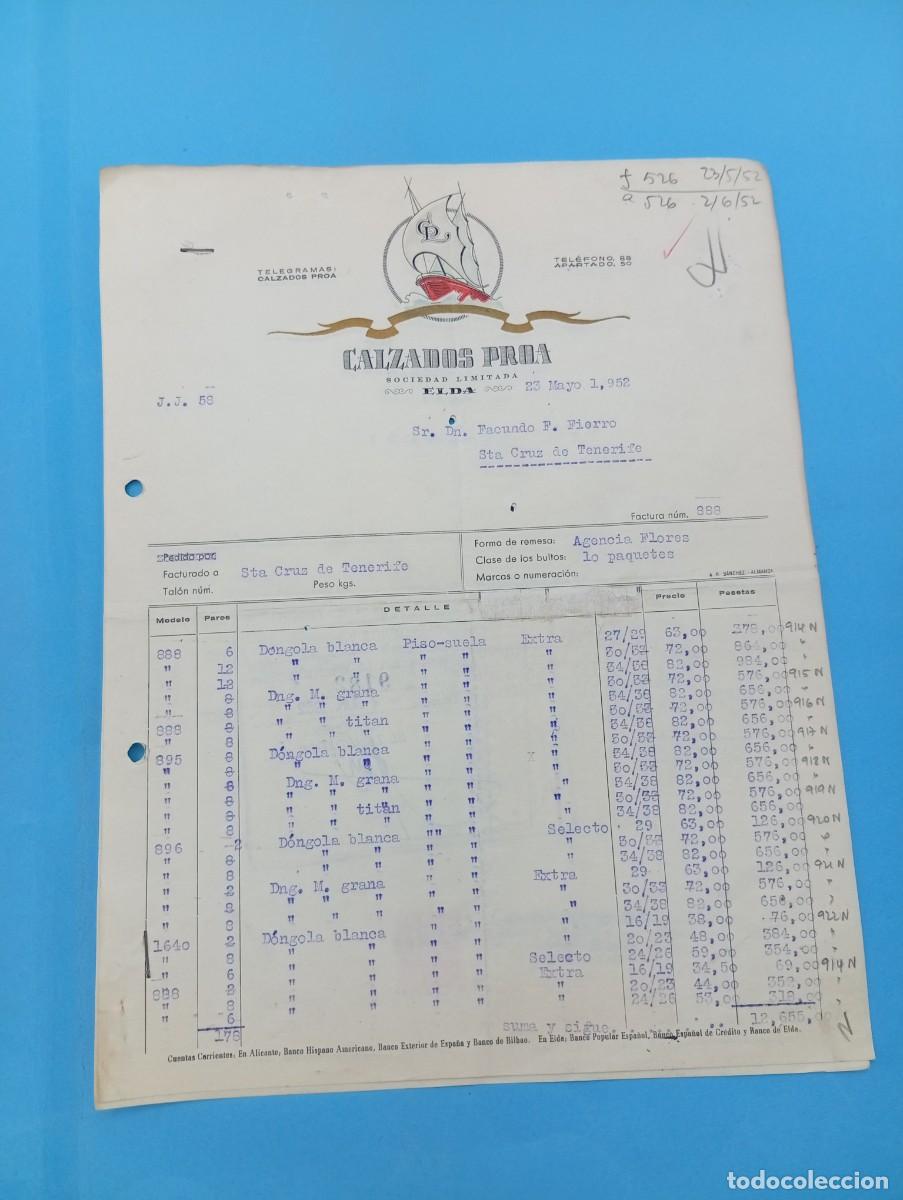 f 526 23/5/52
a 526 2/6/52
CP L
TELEGRAMAS:
CALZADOS PROA
TELÉFONO, 88
APARTADO, 50
CALZADOS PROA
SOCIEDAD LIMITADA
ELDA
23 Mayo 1,952
J.J. 58
Sr. Dn. Facundo F. Fierro
Sta Cruz de Tenerife
Factura núm. 888
Pedido por
Facturado a Sta Cruz de Tenerife
Talón núm. Peso kgs.
Forma de remesa: Agencia Flores
Clase de los bultos: 10 paquetes
Marcas o numeración:
SÁNCHEZ - ALMANSA
Modelo Pares DETALLE Precio Pesetas
888 6 Dongola blanca Piso-suela Extra 27/29 63,00 378,00 914 N
" 12 " " " " " 30/33 72,00 864,00 "
" 12 " " " " " 34/38 82,00 984,00 "
" 8 Dng. M. grana " " " 30/33 72,00 576,00 915 N
" 8 " " " " " " 34/38 82,00 656,00 "
888 8 " " titan " " " 30/33 72,00 576,00 916 N
" 8 " " " " " " 34/38 82,00 656,00 "
895 8 Dóngola blanca " " " 30/33 72,00 576,00 917 N
" 8 " " " " " 34/38 82,00 656,00 "
" 8 Dng. M. grana " " " 30/33 72,00 576,00 918 N
" 8 " " " " " " 34/38 82,00 656,00 "
" 8 " " titán " " " 30/33 72,00 576,00 919 N
" 8 " " " " " " 34/38 82,00 656,00 "
896 2 Dóngola blanca " " Selecto 29 63,00 126,00 920 N
" 8 " " " " " 30/33 72,00 576,00 "
" 8 " " " " " 34/38 82,00 656,00 "
" 2 Dng. M. grana " " Extra 29 63,00 126,00 921 N
" 8 " " " " " " 30/33 72,00 576,00 "
" 8 " " " " " " 34/38 82,00 656,00 "
1640 2 Dóngola blanca " " " 16/19 38,00 76,00 922 N
" 8 " " " " " 20/23 48,00 384,00 "
" 6 " " " " Selecto 24/26 59,00 354,00 "
888 2 " " " " Extra 16/19 34,50 69,00 914 N
" 8 " " " " " 20/23 44,00 352,00 "
" 6 " " " " " 24/26 53,00 318,00 "
178 suma y sigue 12,655,00
Cuentas Corrientes: En Alicante, Banco Hispano Americano, Banco Exterior de España y Banco de Bilbao. En Elda: Banco Popular Español, Banco Español de Crédito y Banco de Elda.
todocoleccion